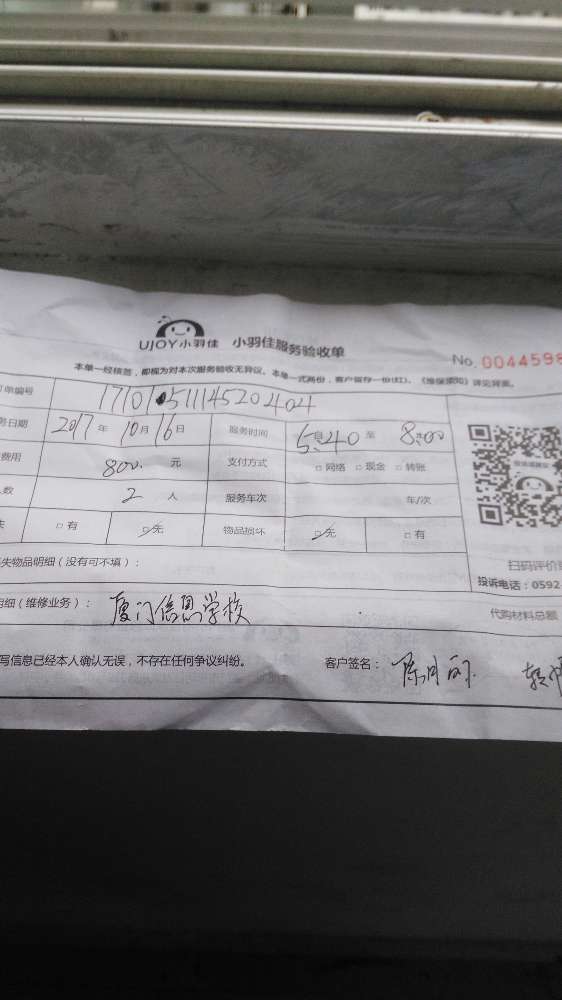 UJOY小羽佳 小羽佳服务验收单
No. 0044598
本单一经核签，即视为对本次服务验收无异议。本单一式两份，客户留存一份(红)。《维保须知》详见背面。
单编号 17101511145202404
务日期 2017 年 10 月 16 日 服务时间 5:40 至 8:00
费用 800. 元 支付方式 □ 网络 □ 现金 □ 转账
人数 2 人 服务车次 车/次
失 □ 有 □ 无 物品损坏 □ 无 □ 有
扫码评价
失物品明细（没有可不填）：
投诉电话：0592
明细（维修业务）： 厦门信息学校
代购材料总额
写信息已经本人确认无误，不存在任何争议纠纷。 客户签名：